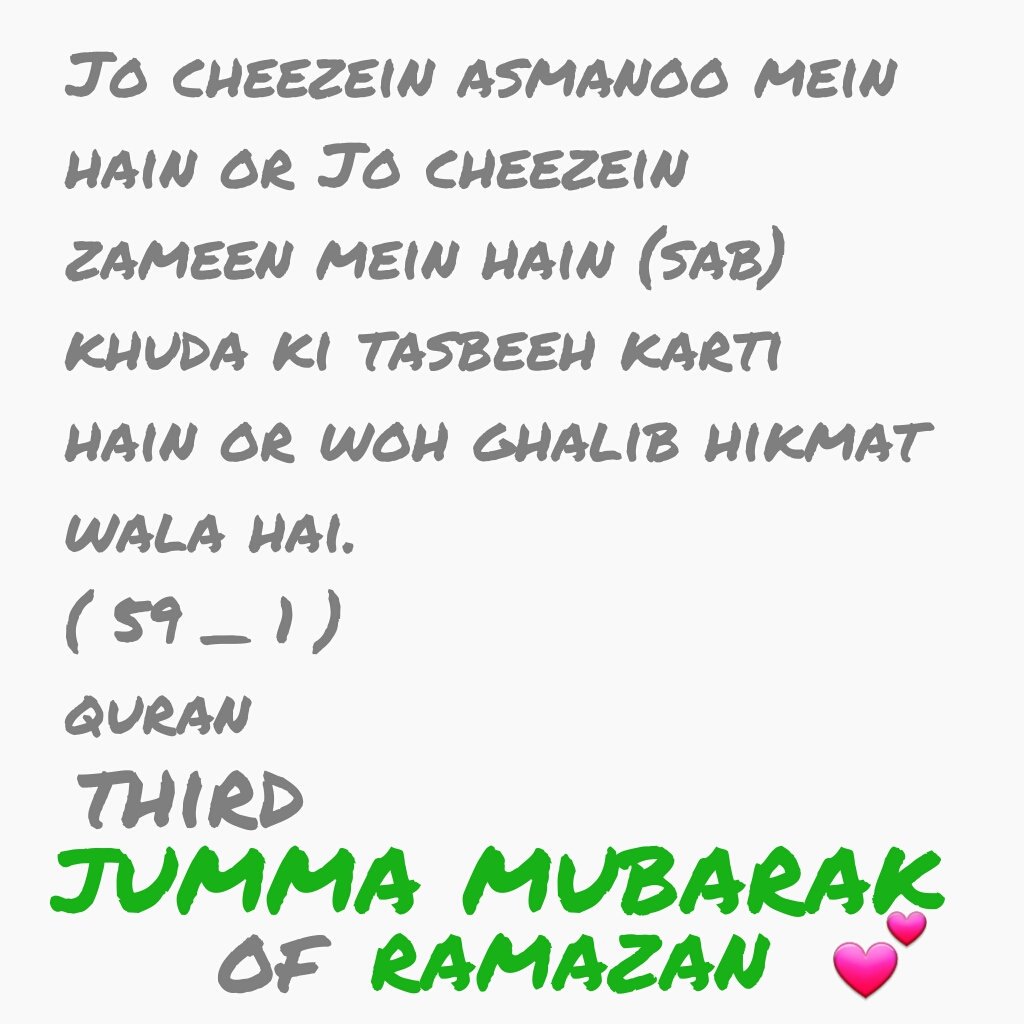 Jo cheezein asmanoo mein
hain or Jo cheezein
zameen mein hain (sab)
khuda ki tasbeeh karti
hain or woh ghalib hikmat
wala hai.
( 59 _ 1 )
quran
THIRD
JUMMA MUBARAK
OF RAMAZAN 💕